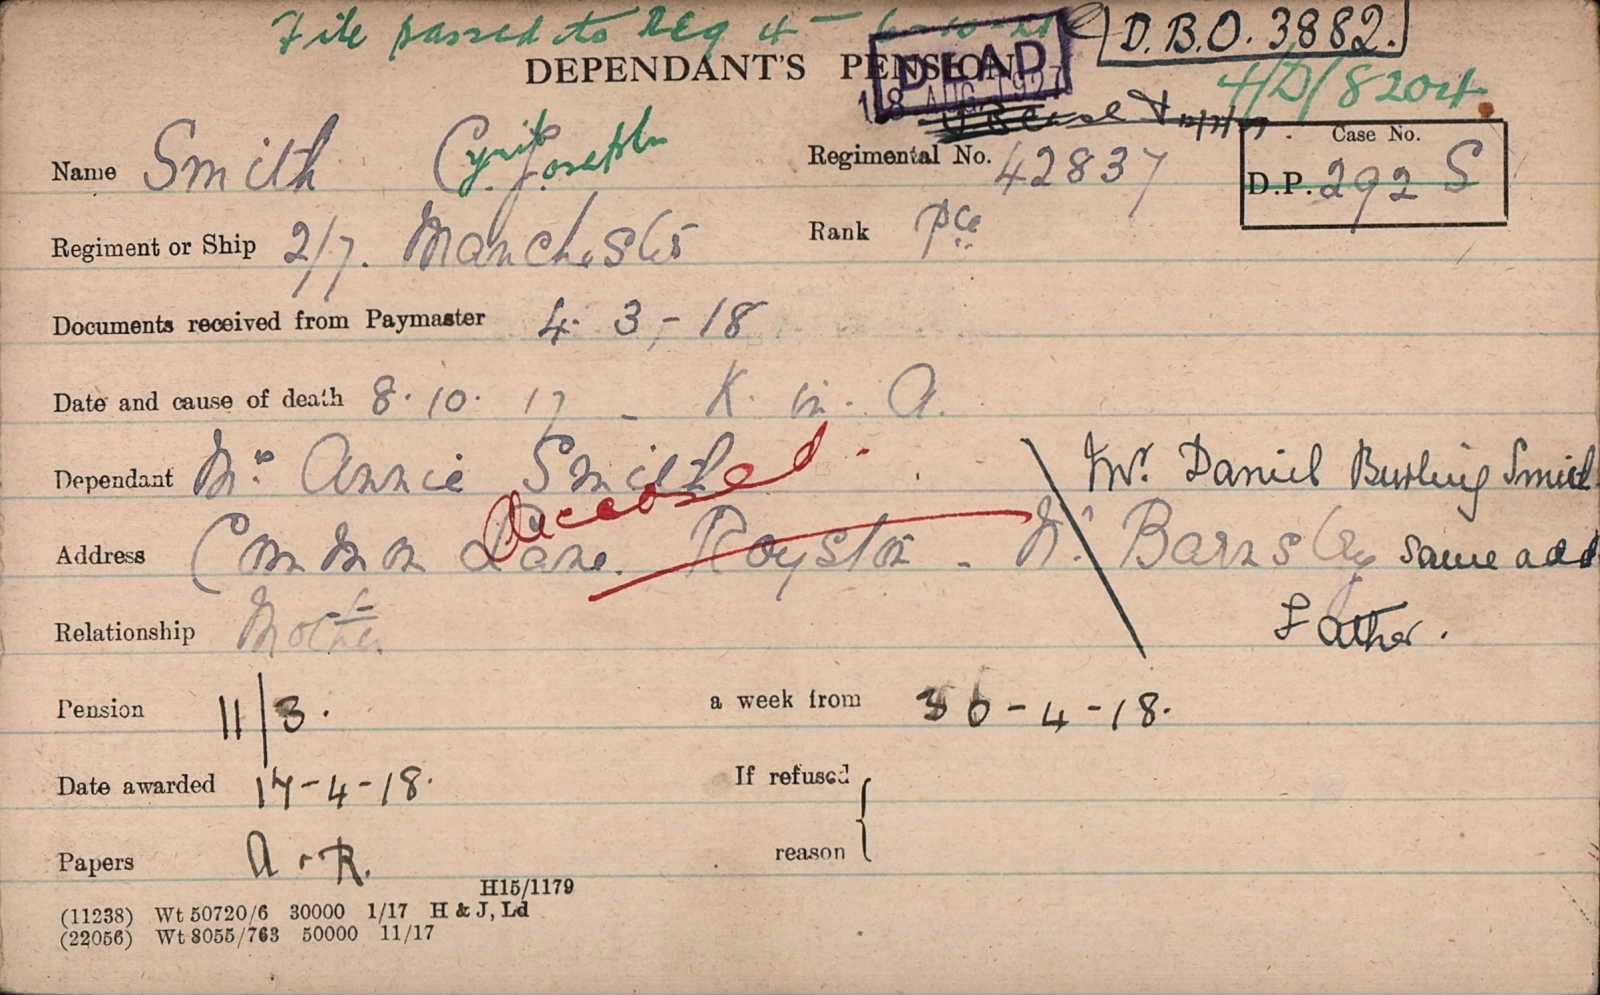 File passed to Reg 4 - 6-10-21
D.B.O. 3882.
DEPENDANT'S PENSION
DEAD
18 AUG 1927
4/D/8204
Name Smith C. J. Cyril Joseph
Regimental No. 42837
Case No.
D.P. 292 S
Regiment or Ship 2/7. Manchester
Rank Pte
Documents received from Paymaster 4. 3 - 18
Date and cause of death 8. 10. 17 - K. in. A.
Dependant Mrs Annie Smith deceased.
Mr. Daniel Burling Smith
Address Common Lane. Royston - Nr Barnsley
same add
Relationship Mother
Father.
Pension 11/3.
a week from 36-4-18.
Date awarded 17-4-18.
If refused
reason
Papers A. R.
H15/1179
(11238) Wt 50720/6 30000 1/17 H & J, Ld
(22056) Wt 8055/763 50000 11/17